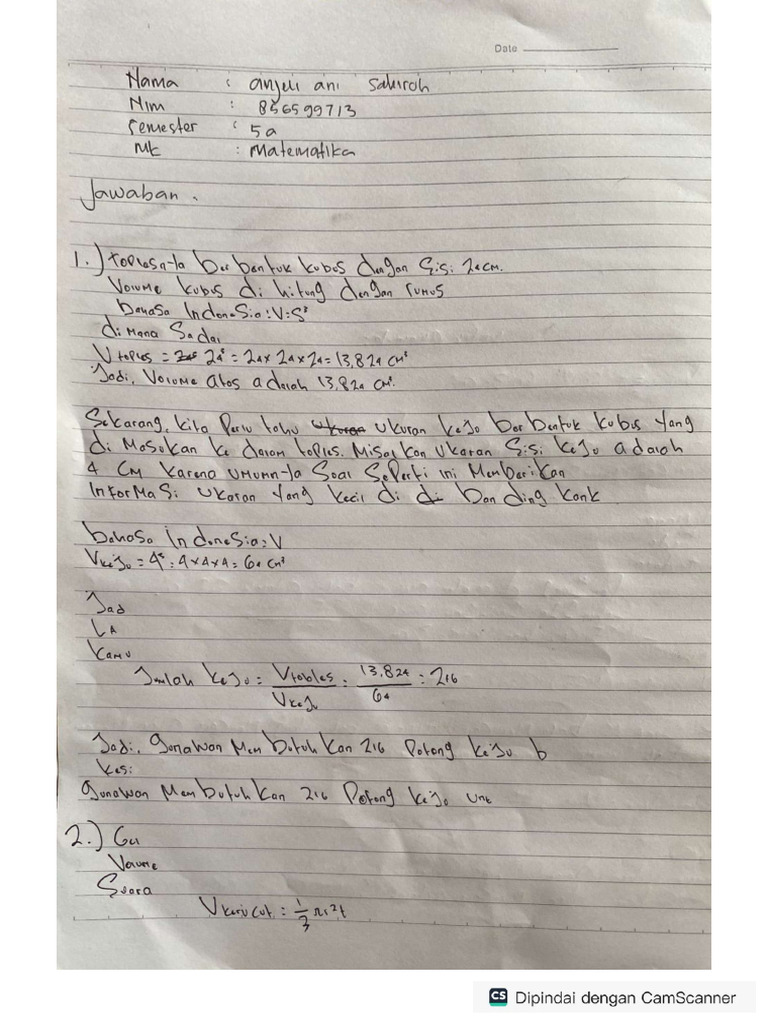 Date
Nama : anjeli ani sakiroh
Nim : 856599713
semester : 5a
Mk : Matematika
Jawaban.
1.) toplesnya berbentuk kubus dengan sisi 24cm.
Volume kubus di hitung dengan rumus
bahasa Indonesia : V = S³
di mana S adal
V toples = 24³ = 24 x 24 x 24 = 13,824 cm³
Jadi, Volume atos adalah 13,824 cm³.
Sekarang, kita Perlu tahu ukuran keju berbentuk kubus yang
di Masukan ke dalam toples. Misalkan Ukuran Sisi keju adalah
4 CM karena UMUMnya Soal Seperti ini Memberikan
InForMaSi Ukuran yang kecil di banding kank
bahasa Indonesia : V
Vkeju = 4³ = 4 x 4 x 4 = 64 cm³
Jad
LA
kamu
Jumlah keju = Vtobles / Vkeju = 13,824 / 64 = 216
Jadi, Gunawan Membutuhkan 216 Potong keju b
kesi
Gunawan Membutuhkan 216 Potong keju unt
2.) Gu
Voume
Seora
V kerucut = 1/3 πr²t
CS Dipindai dengan CamScanner